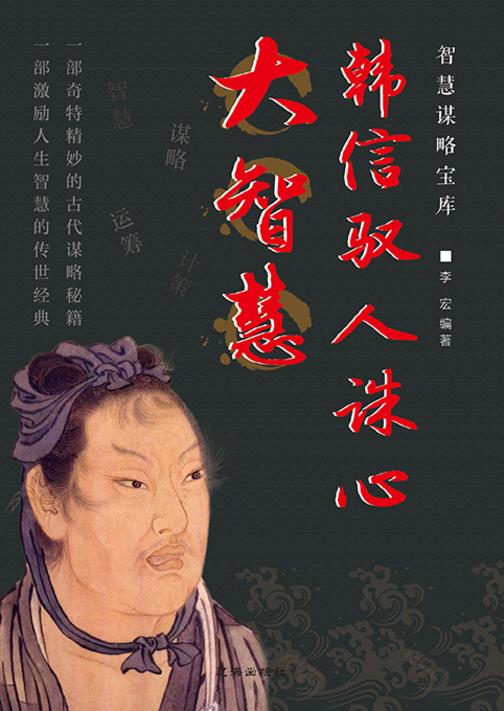 智慧谋略宝库
李宏编著
韩信驭人诛心
大智慧
智慧
谋略
运筹
计策
一部奇特精妙的古代谋略秘籍
一部激励人生智慧的传世经典
辽海出版社